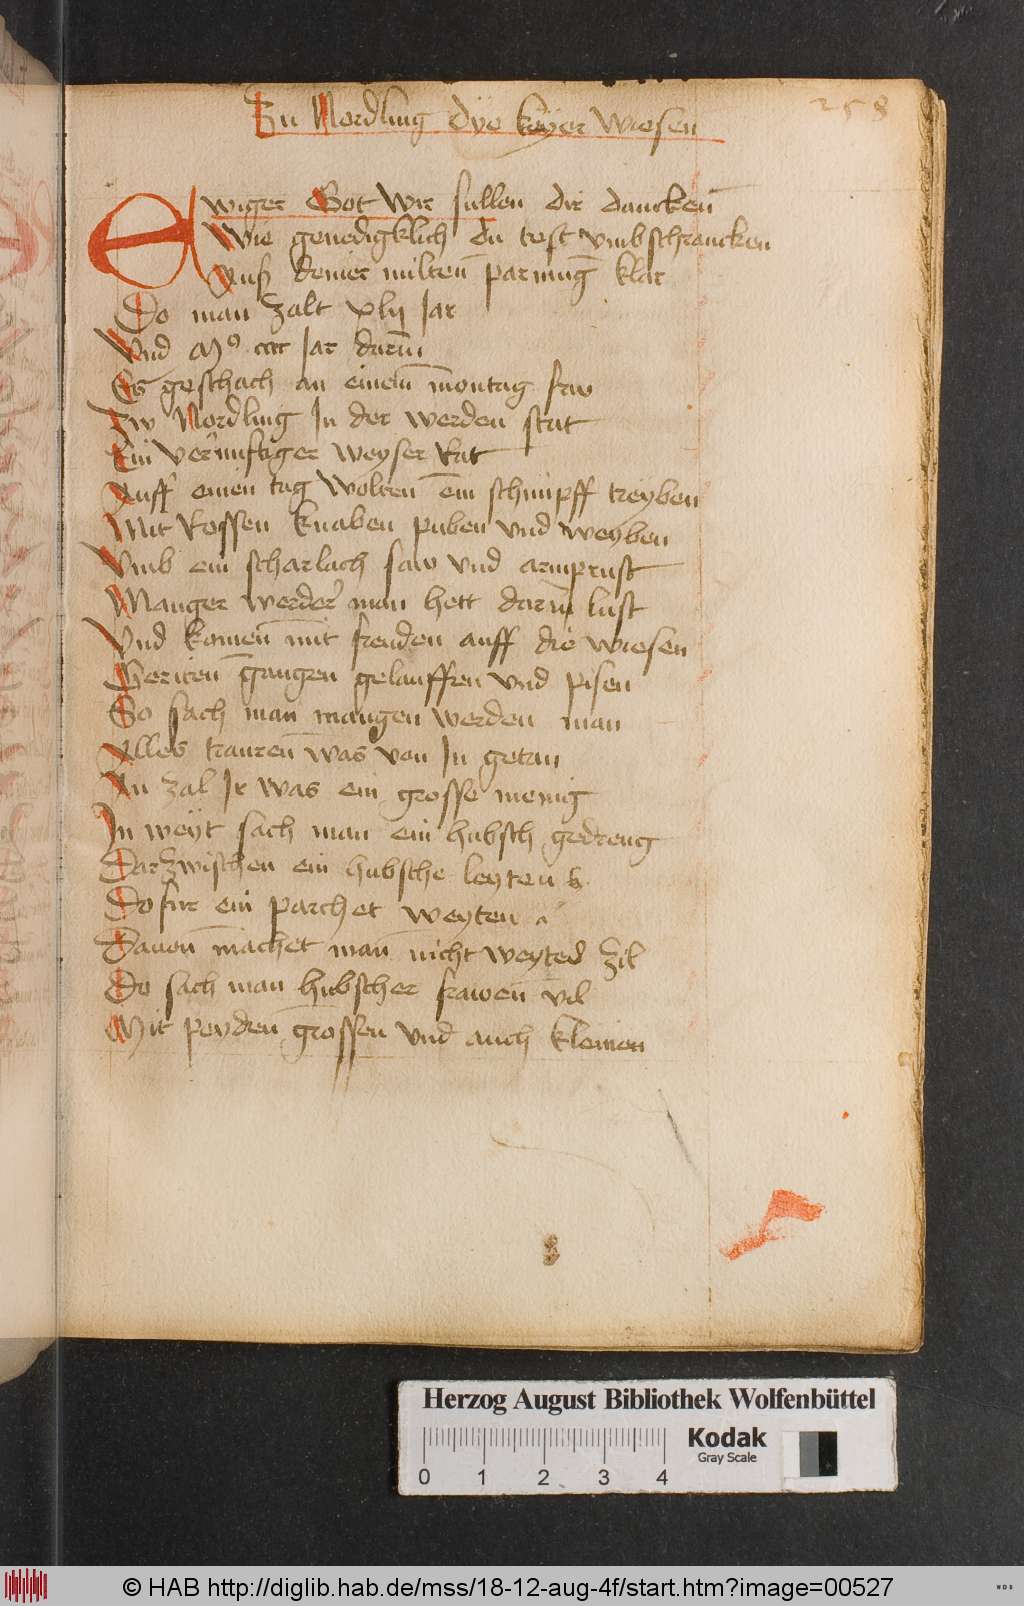 Zu Nordling dÿe keÿer wiesen
258
Ewiger Got wir sullen dir dancken
Wie genedigklich du test vmbschrancken
Auß deiner milten parmūg klar
Do man zalt xlij Jar
Vnd M⁹ cccc Jar darīn
Es geschach an einem montag frw
Zw Nordling In der werden stat
Ein vernunftiger weyser Rat
Auff einen tag wolten ein schimpff treyben
Mit Rossen knaben puben vnd weyben
Vmb ein scharlach saw vnd armprust
Manger werder man hett darīn lust
Vnd komen mit freuden auff die wiesen
Geriten gangen gelauffen vnd pisen
So sach man mangen werden man
Alles trauren was von In getan
An zal Ir was ein grosse menig
In weÿt sach man ein hubsch gedreng
Darzwischen ein hubsche leyten b
Dofur ein parchet weyten a
Dauon machet man nicht weyted zil
Do sach man hubscher frawen vil
Mit peyden grossen vnd auch kleinen
Herzog August Bibliothek Wolfenbüttel
Kodak
Gray Scale
0 1 2 3 4
© HAB http://diglib.hab.de/mss/18-12-aug-4f/start.htm?image=00527